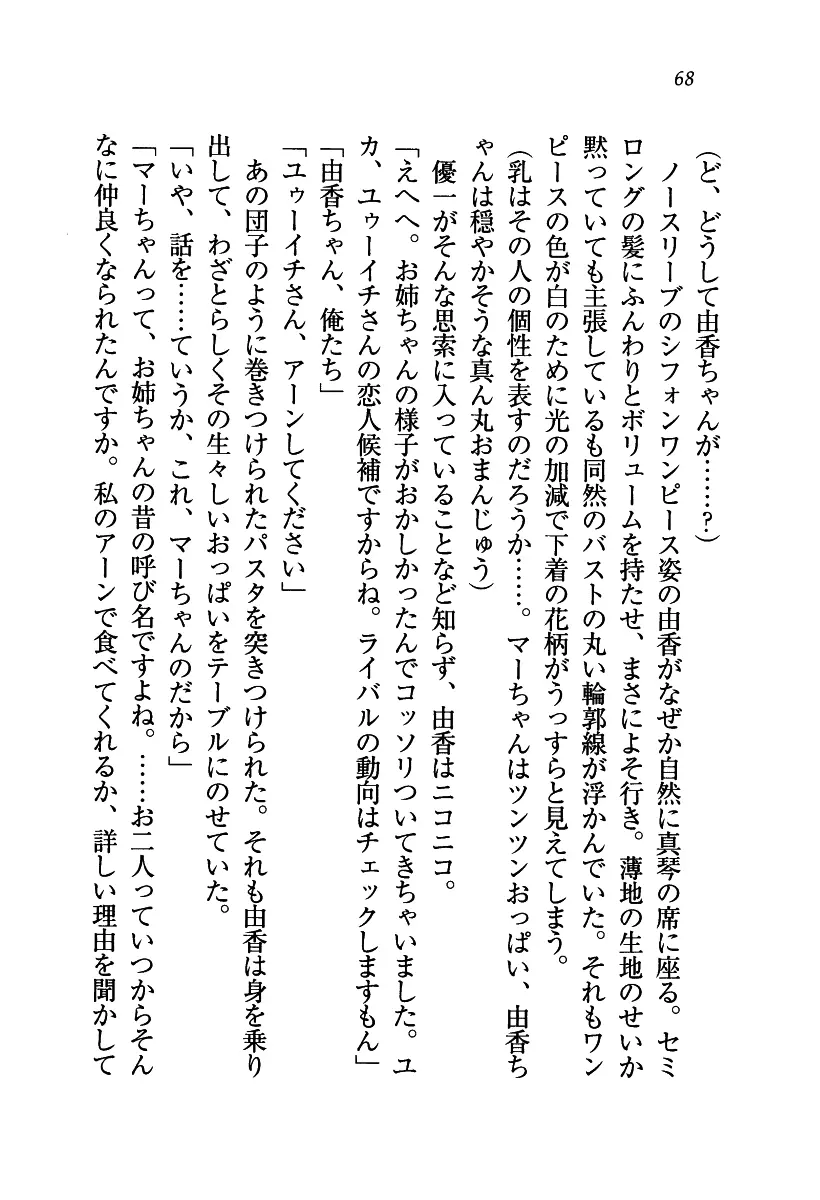 68
（ど、どうして由香ちゃんが……？）
　ノースリーブのシフォンワンピース姿の由香がなぜか自然に真琴の席に座る。セミ
ロングの髪にふんわりとボリュームを持たせ、まさによそ行き。薄地の生地のせいか
黙っていても主張しているも同然のバストの丸い輪郭線が浮かんでいた。それもワン
ピースの色が白のために光の加減で下着の花柄がうっすらと見えてしまう。
（乳はその人の個性を表すのだろうか……。マーちゃんはツンツンおっぱい、由香ち
ゃんは穏やかそうな真ん丸おまんじゅう）
　優一がそんな思索に入っていることなど知らず、由香はニコニコ。
「えへへ。お姉ちゃんの様子がおかしかったんでコッソリついてきちゃいました。ユ
カ、ユゥーイチさんの恋人候補ですからね。ライバルの動向はチェックしますもん」
「由香ちゃん、俺たち」
「ユゥーイチさん、アーンしてください」
　あの団子のように巻きつけられたパスタを突きつけられた。それも由香は身を乗り
出して、わざとらしくその生々しいおっぱいをテーブルにのせていた。
「いや、話を……ていうか、これ、マーちゃんのだから」
「マーちゃんって、お姉ちゃんの昔の呼び名ですよね。……お二人っていつからそん
なに仲良くなられたんですか。私のアーンで食べてくれるか、詳しい理由を聞かして